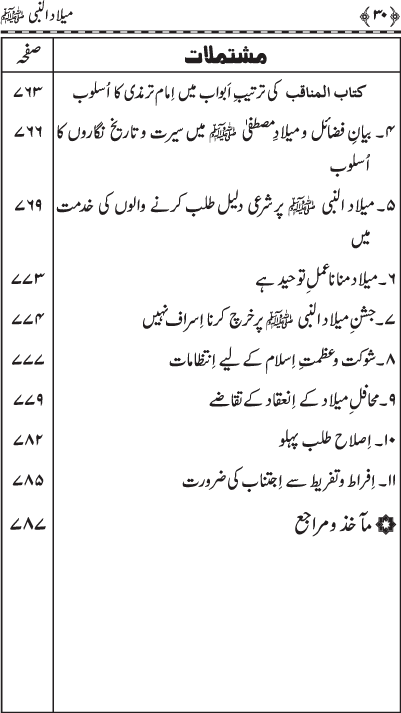 ﴿۳۰﴾ میلاد النبی ﷺ
مشتملات صفحہ
کتاب المناقب کی ترتیبِ اَبواب میں اِمام ترمذی کا اُسلوب ۷۶۳
۴۔ بیانِ فضائل و میلادِ مصطفیٰ ﷺ میں سیرت و تاریخ نگاروں کا ۷۶۶
اُسلوب
۵۔ میلاد النبی ﷺ پر شرعی دلیل طلب کرنے والوں کی خدمت ۷۶۹
میں
۶۔ میلاد منانا عملِ توحید ہے ۷۷۳
۷۔ جشنِ میلاد النبی ﷺ پر خرچ کرنا اِسراف نہیں ۷۷۴
۸۔ شوکت و عظمتِ اِسلام کے لیے اِنتظامات ۷۷۷
۹۔ محافلِ میلاد کے اِنعقاد کے تقاضے ۷۷۹
۱۰۔ اِصلاح طلب پہلو ۷۸۲
۱۱۔ اِفراط و تفریط سے اِجتناب کی ضرورت ۷۸۵
مآخذ و مراجع ۷۸۷